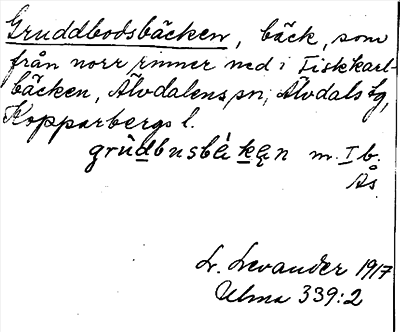 Gruddbodsbäcken, bäck, som
från norr rinner ned i Fiskkarl-
bäcken, Älvdalens sn, Älvdals tg,
Kopparbergs l.
grùdbusbä̀kęn m. I b.
Ås
L. Levander 1917
Ulma 339:2